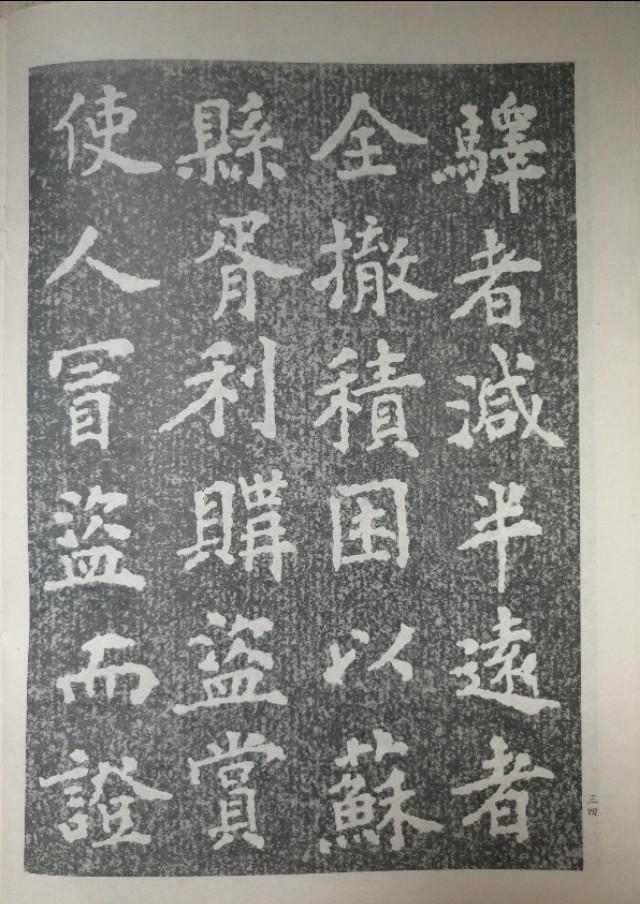 驛者減半遠者
全撤積困以蘇
縣胥利購盜賞
使人冒盜而證
三四